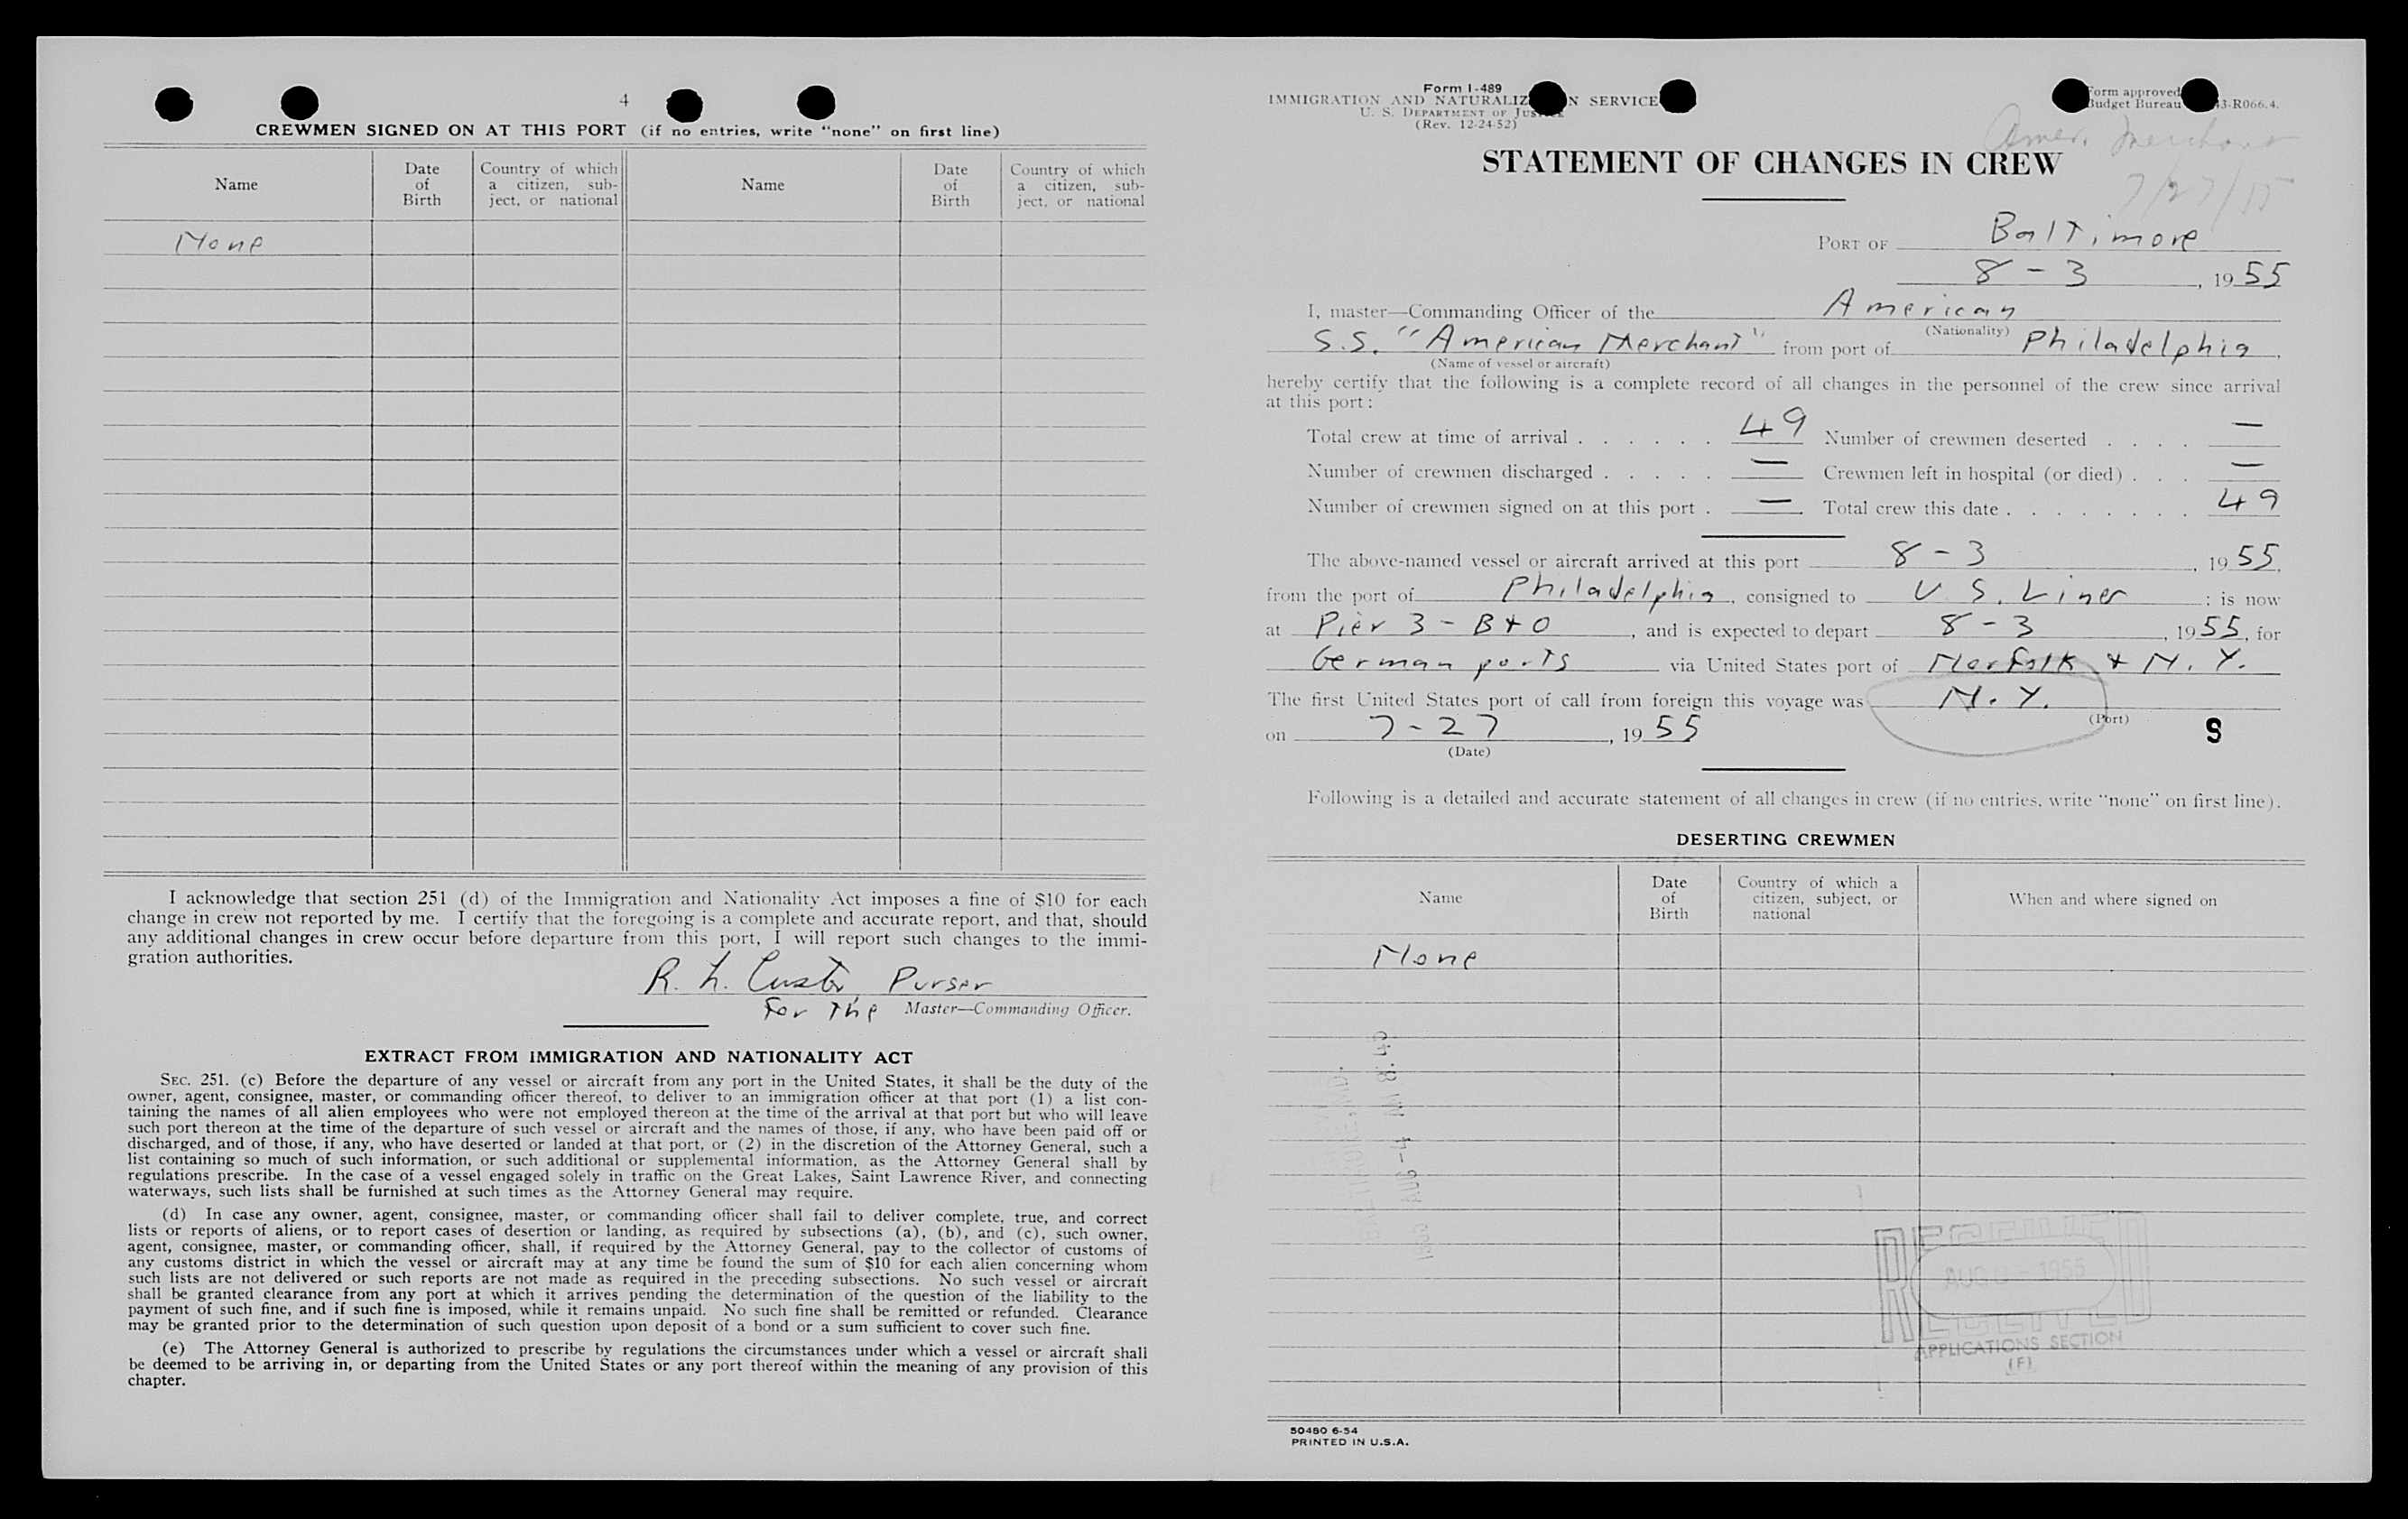 4
CREWMEN SIGNED ON AT THIS PORT (if no entries, write "none" on first line)
Name
Date of Birth
Country of which a citizen, subject, or national
Name
Date of Birth
Country of which a citizen, subject, or national
None
I acknowledge that section 251 (d) of the Immigration and Nationality Act imposes a fine of $10 for each
change in crew not reported by me. I certify that the foregoing is a complete and accurate report, and that, should
any additional changes in crew occur before departure from this port, I will report such changes to the immi-
gration authorities.
R. L. Custer Purser
For The Master—Commanding Officer.
EXTRACT FROM IMMIGRATION AND NATIONALITY ACT
SEC. 251. (c) Before the departure of any vessel or aircraft from any port in the United States, it shall be the duty of the
owner, agent, consignee, master, or commanding officer thereof, to deliver to an immigration officer at that port (1) a list con-
taining the names of all alien employees who were not employed thereon at the time of the arrival at that port but who will leave
such port thereon at the time of the departure of such vessel or aircraft and the names of those, if any, who have been paid off or
discharged, and of those, if any, who have deserted or landed at that port, or (2) in the discretion of the Attorney General, such a
list containing so much of such information, or such additional or supplemental information, as the Attorney General shall by
regulations prescribe. In the case of a vessel engaged solely in traffic on the Great Lakes, Saint Lawrence River, and connecting
waterways, such lists shall be furnished at such times as the Attorney General may require.
(d) In case any owner, agent, consignee, master, or commanding officer shall fail to deliver complete, true, and correct
lists or reports of aliens, or to report cases of desertion or landing, as required by subsections (a), (b), and (c), such owner,
agent, consignee, master, or commanding officer, shall, if required by the Attorney General, pay to the collector of customs of
any customs district in which the vessel or aircraft may at any time be found the sum of $10 for each alien concerning whom
such lists are not delivered or such reports are not made as required in the preceding subsections. No such vessel or aircraft
shall be granted clearance from any port at which it arrives pending the determination of the question of the liability to the
payment of such fine, and if such fine is imposed, while it remains unpaid. No such fine shall be remitted or refunded. Clearance
may be granted prior to the determination of such question upon deposit of a bond or a sum sufficient to cover such fine.
(e) The Attorney General is authorized to prescribe by regulations the circumstances under which a vessel or aircraft shall
be deemed to be arriving in, or departing from the United States or any port thereof within the meaning of any provision of this
chapter.
Form I-489
IMMIGRATION AND NATURALIZ N SERVICE
U. S. DEPARTMENT OF JUSTICE
(Rev. 12-24-52)
orm approved
Budget Bureau 43-R066.4.
Amer. Merchant
7/27/55
STATEMENT OF CHANGES IN CREW
PORT OF Baltimore
8 - 3, 1955
I, master—Commanding Officer of the American
(Nationality)
S.S. "American Merchant" from port of Philadelphia,
(Name of vessel or aircraft)
hereby certify that the following is a complete record of all changes in the personnel of the crew since arrival
at this port:
Total crew at time of arrival . . . . . . 49 Number of crewmen deserted . . . . —
Number of crewmen discharged . . . . . — Crewmen left in hospital (or died) . . . —
Number of crewmen signed on at this port . — Total crew this date . . . . . . . . 49
The above-named vessel or aircraft arrived at this port 8 - 3, 1955,
from the port of Philadelphia, consigned to U. S. Liner; is now
at Pier 3 - B + O, and is expected to depart 8 - 3, 1955, for
German ports via United States port of Norfolk + N. Y.
The first United States port of call from foreign this voyage was N. Y.
(Port)
S
on 7 - 27, 1955
(Date)
Following is a detailed and accurate statement of all changes in crew (if no entries, write "none" on first line).
DESERTING CREWMEN
Name
Date of Birth
Country of which a citizen, subject, or national
When and where signed on
None
RECEIVED
APPLICATIONS SECTION
(F)
50480 6-54
PRINTED IN U.S.A.